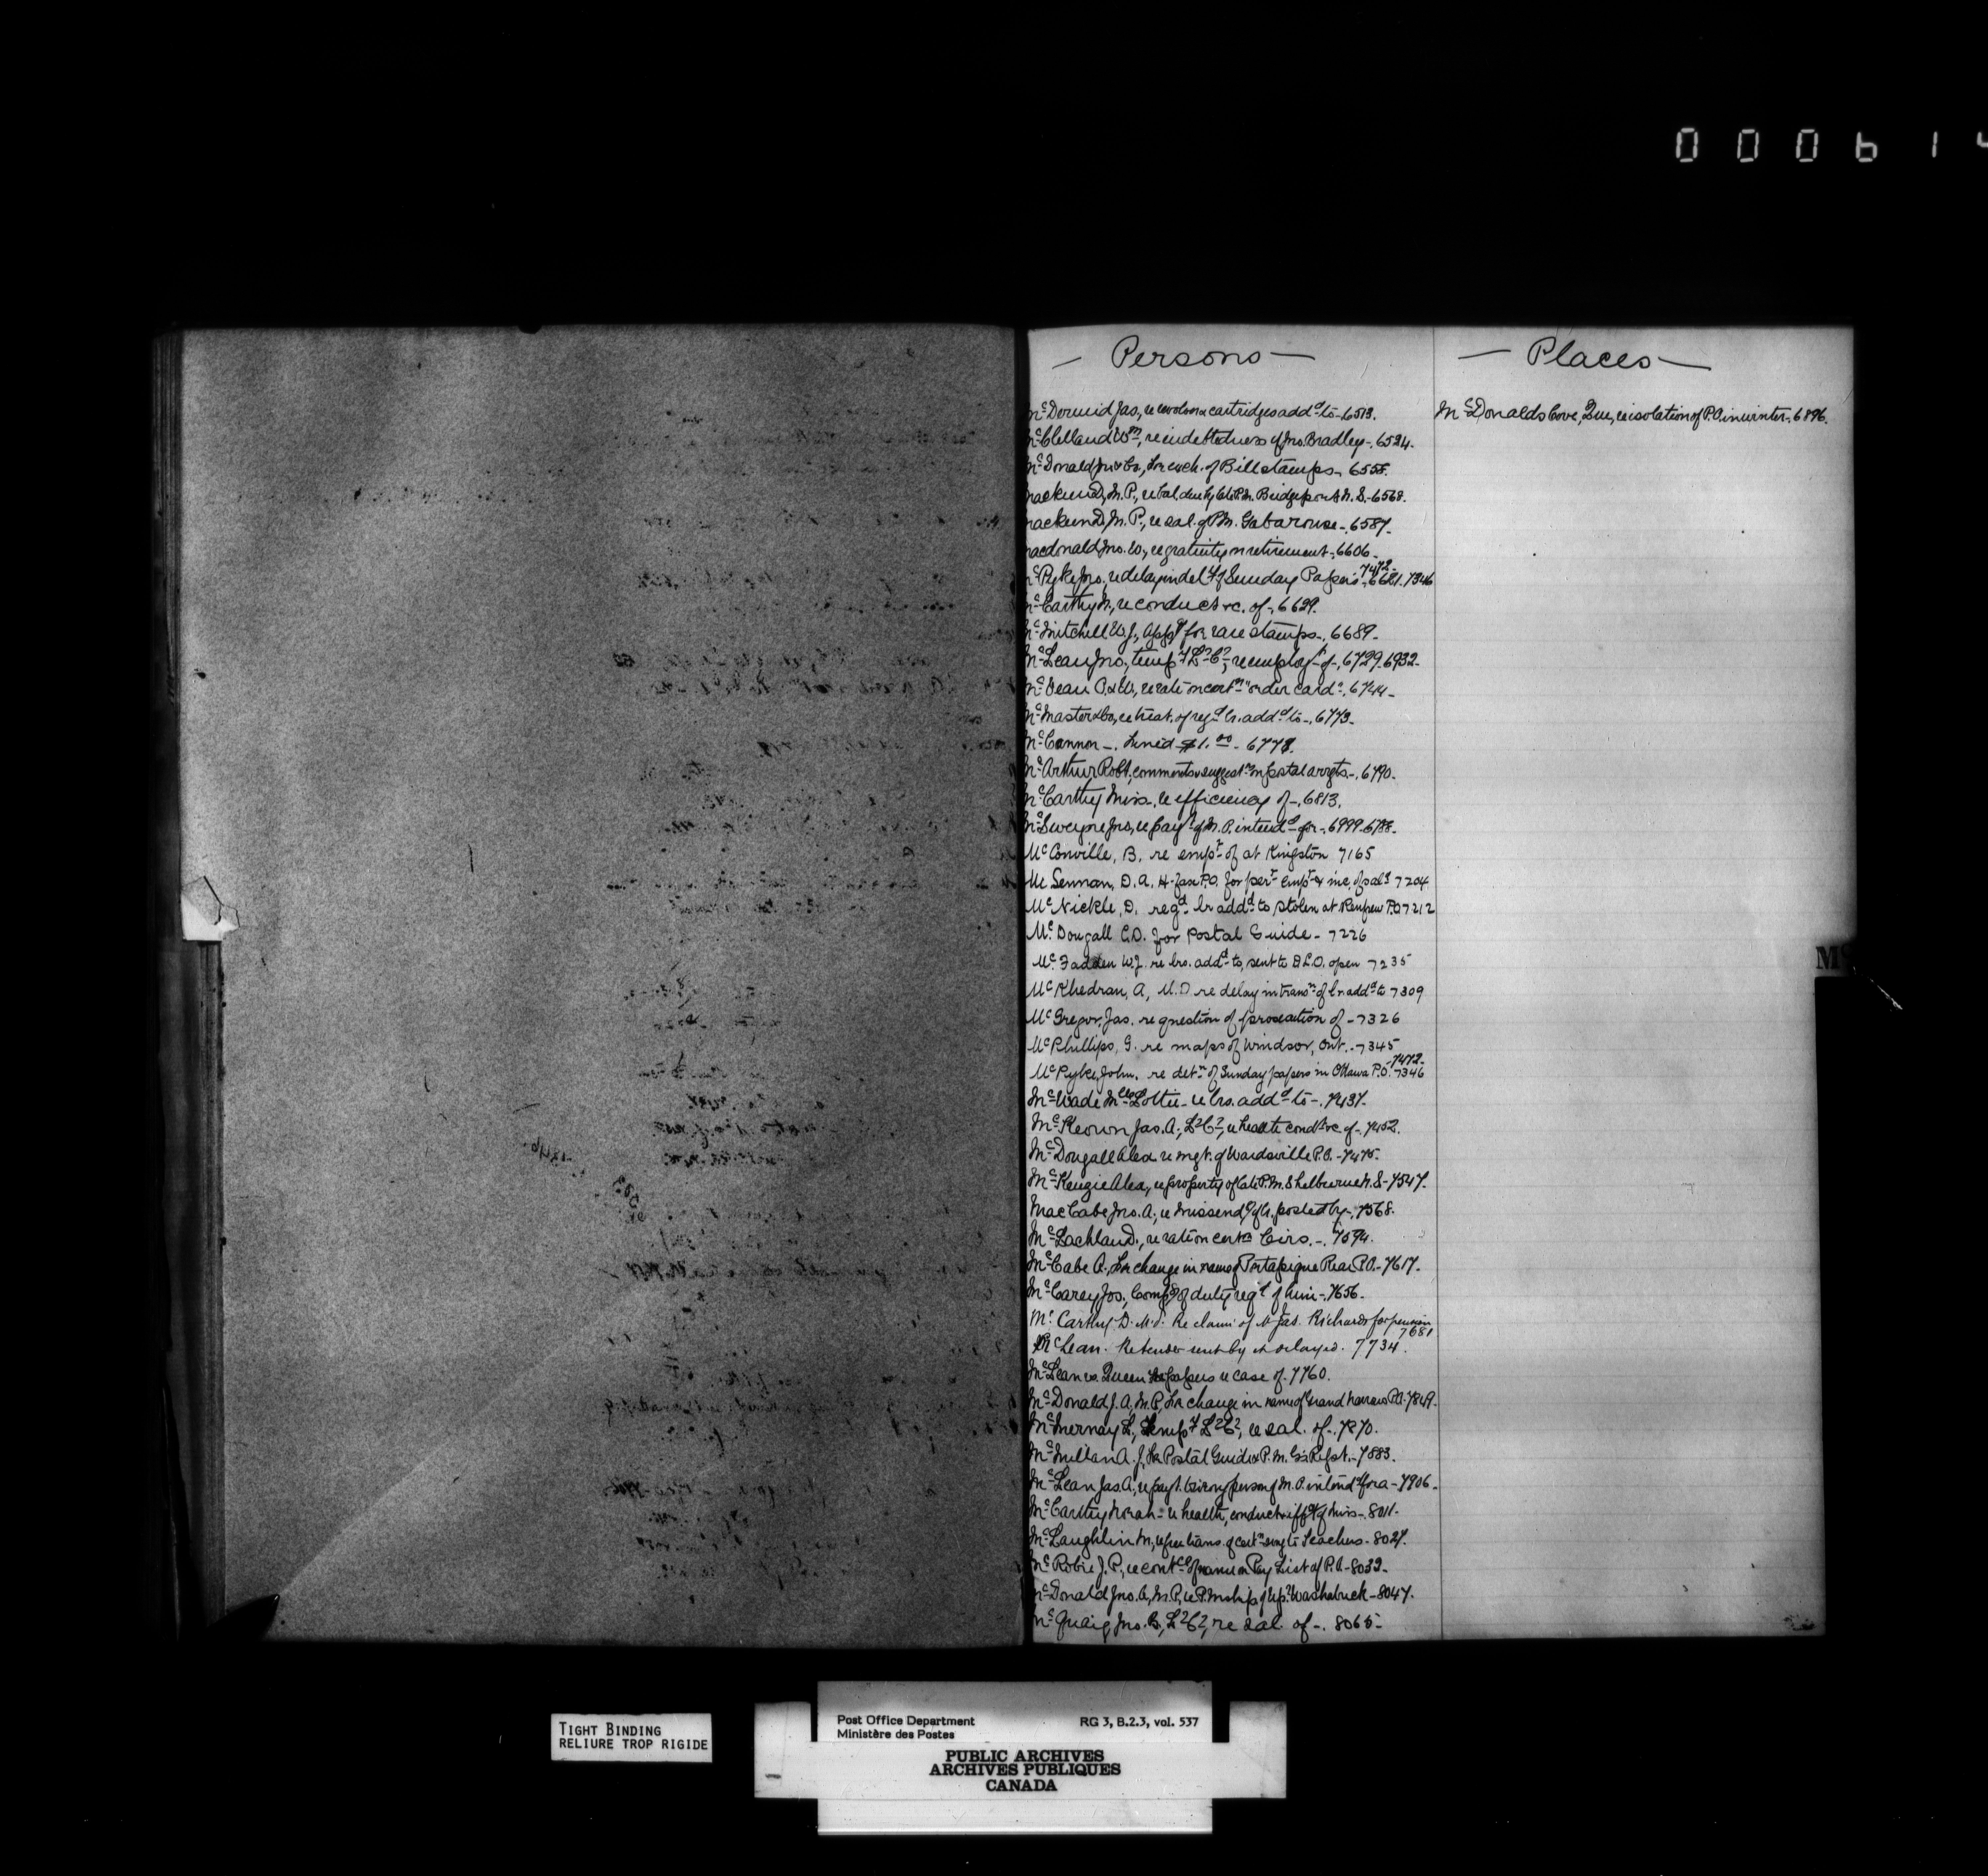 000614
— Persons —
McDermid Jas, re revolver & cartridges addd to - 6513.
McClelland Wm, re indebtedness of Jno. Bradley - 6524.
McDonald Jno & Co., for exch. of Bill stamps - 6555.
M.P., re bal. due by late P.M. Bridgeport N.S. - 6568.
M.P., re sal. of P.M. Gabarouse - 6587 -
macdonald Jno. W., re gratuity on retirement - 6606 -
7472 -
McPyke Jno., re delay in dely of Sunday Papers - 6621. 7346
McCarthy M, re conduct &c. of - 6629.
McMitchell W.J., appn for rare stamps - 6689 -
McLean Jno, tempy L.C., re employt of - 6729. 6932 -
McVean P. & W., re rate on certn "order card" - 6744 -
McMaster & Co, re treat. of regd lr. addd to - 6773 -
McCannon - fined $1.00 - 6778.
McArthur Robt, comments & suggestns on postal arrgts - 6790 -
McCarthy Miss, re efficiency of - 6813.
McSweyne Jno, re payt of M.O. intendd for - 6999. 6788 -
McConville, B. re empt of at Kingston 7165
McLennan, D.A. H-fax P.O. for pert empt & inc. of saly 7204
McNickle, D. regd lr addd to stolen at Renfrew P.O 7212
McDougall C.D. for Postal Guide - 7226
McFadden W.J. re lrs. addd to, sent to D.L.O. open 7235
McKhedran, A, M.D re delay in transn of lr addd to 7309
McGregor, Jas. re question of prosecution of - 7326
McPhillips, G. re maps of Windsor, Ont. - 7345
- 7472 -
McPyke, John. re detn of Sunday papers in Ottawa P.O. 7346
McWade Mlle Lottie - re lrs. addd to - 7437.
McKeown Jas. A., L.C., re health condt &c. of - 7452.
McDougall Alex re mgt. of Wardsville P.O. - 7475 -
McKenzie Alex, re property of late P.M. Shelburne N.S - 7547.
MacCabe Jno. A., re missendg of lr. posted by - 7568.
McLachlan D., re rate on certn Circs. - 7594.
McCabe A., for change in name of Portapique Rear P.O. - 7617 -
McCarey Jos., Compg of duty reqd of him - 7656 -
McCarthy D. M.P. Re claim of Jas. Richards for pension
7681
McLean. Re tender sent by & delayed. 7734.
McLean vs. Queen for papers re case of. 7760.
McDonald J.A, M.P, for change in name of Grand Narrows P.O. 7849 -
McInernay L, tempy L.C., re sal. of - 7870.
McMillan A.J, for Postal Guide & P.M.G's Repst. - 7883.
McLean Jas. A., re payt. to wrong person of M.O. intendd for a - 7906 -
McCarthy Norah - re health, conduct & effcy of Miss - 8011.
McLaughlin M, re free trans. of certn to Teachers - 8027.
McRobie J.P., re contce of name on Pay List of P.O. - 8032 -
McDonald Jno. A, M.P, re P.Mship of Up. Washabuck - 8047.
McQuaig Jno. B, L.C., re sal. of - 8065 -
— Places —
McDonalds Cove, Que, re isolation of P.O. in winter - 6896.
Mc
TIGHT BINDING
RELIURE TROP RIGIDE
Post Office Department RG 3, B.2.3, vol. 537
Ministère des Postes
PUBLIC ARCHIVES
ARCHIVES PUBLIQUES
CANADA